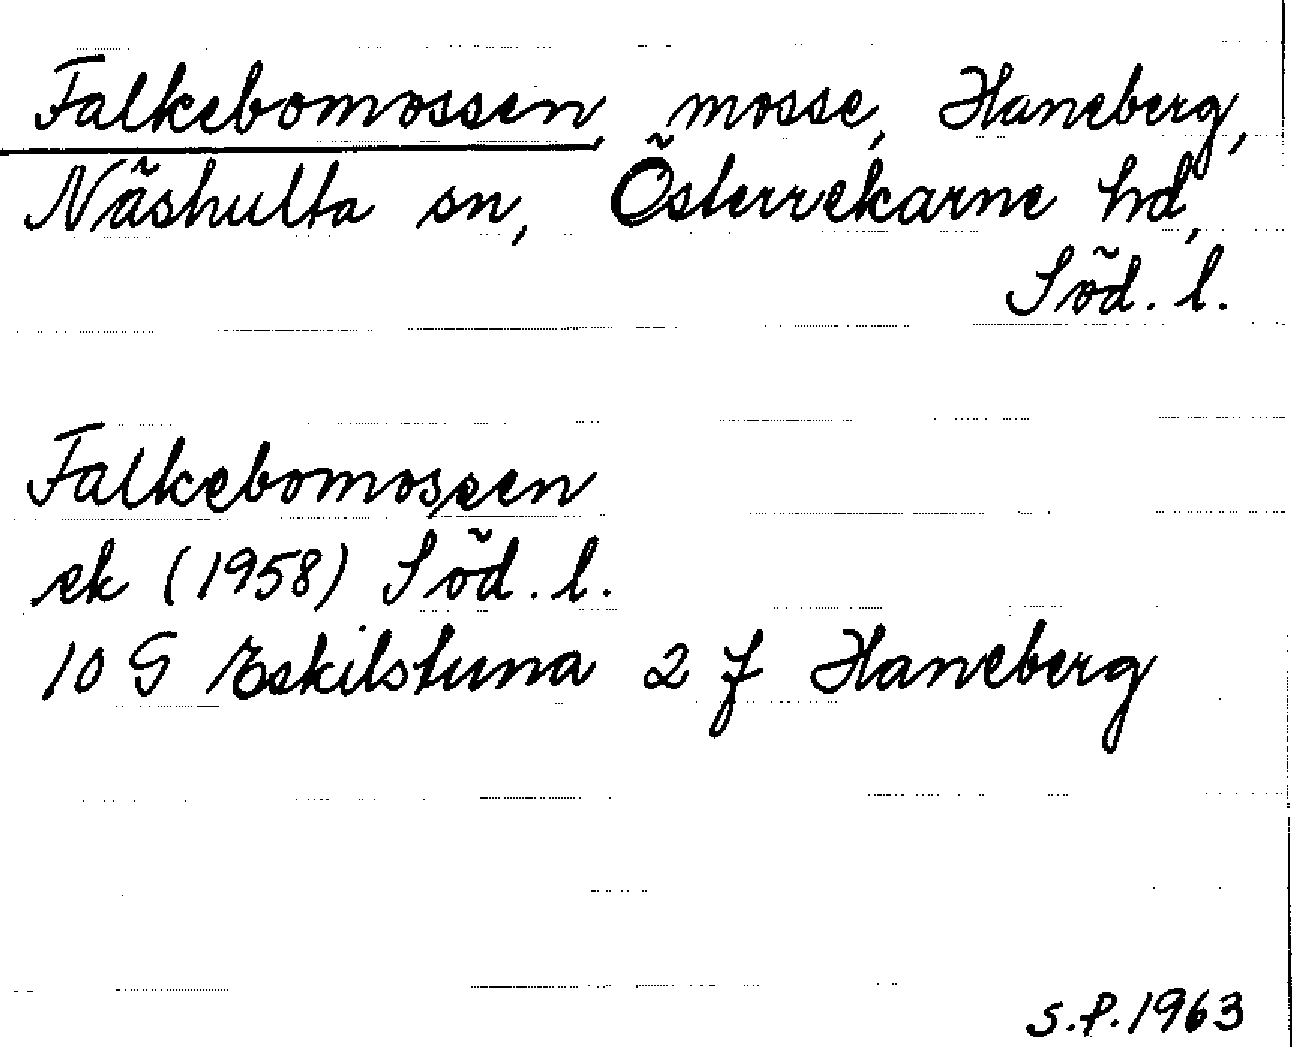 Falkebomossen, mosse, Haneberg,
Näshulta sn, Österrekarne hd,
Söd. l.
Falkebomossen
ek (1958) Söd. l.
10 G Eskilstuna 2 f Haneberg
S.P. 1963